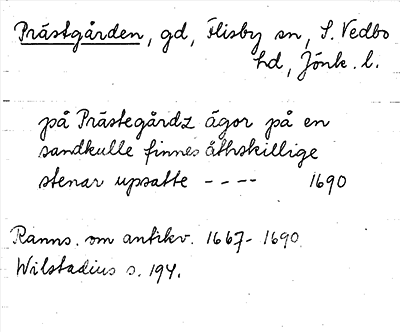 Prästgården, gd, Flisby sn, S. Vedbo
hd, Jönk. l.
på Prästegårdz ägor på en
sandkulle finnes åthskillige
stenar upsatte - - - - 1690
Ranns. om antikv. 1667-1690
Wilstadius s. 194.